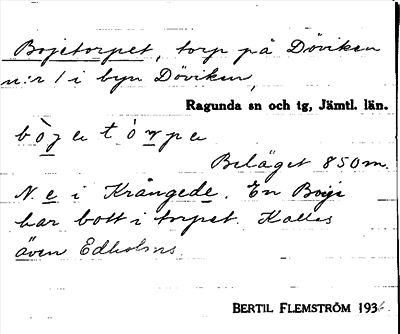 Bojetorpet, torp på Döviken
n:r 1 i byn Döviken,
Ragunda sn och tg, Jämtl. län.
bòje tòrpe
Beläget 850 m.
N. e i Krångede. En Boije
har bott i torpet. Kallas
även Edholms.
BERTIL FLEMSTRÖM 1936.